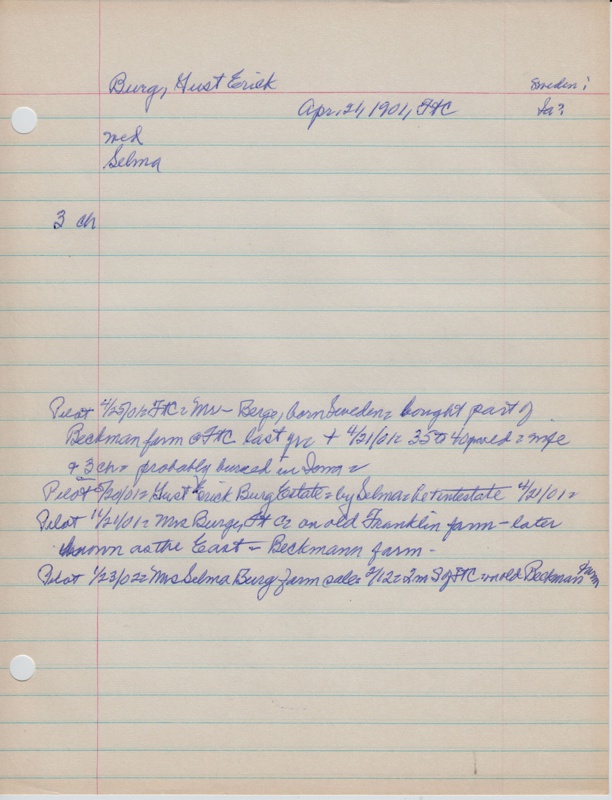 Burg, Gust Erick
Sweden?
Apr. 21, 1901, FtC
Ia?
md
Selma
3 ch
Pilot 4/25/01= FtC= Mr - Berge, born Sweden= bought part of
Beckman farm @ FtC last yr= + 4/21/01= 35 40 = wife
+ 3 ch= probably buried in Iowa=
Pilot 5/20/01= Gust Erick Burg Estate= by Selma= he intestate 4/21/01=
Pilot 11/21/01= Mrs Burge, Ft C= on old Franklin farm - later
known as the East = Beckmann farm -
Pilot 1/23/02= Mrs Selma Burg farm sale= 2/12= 2m S of FtC on old Beckman farm